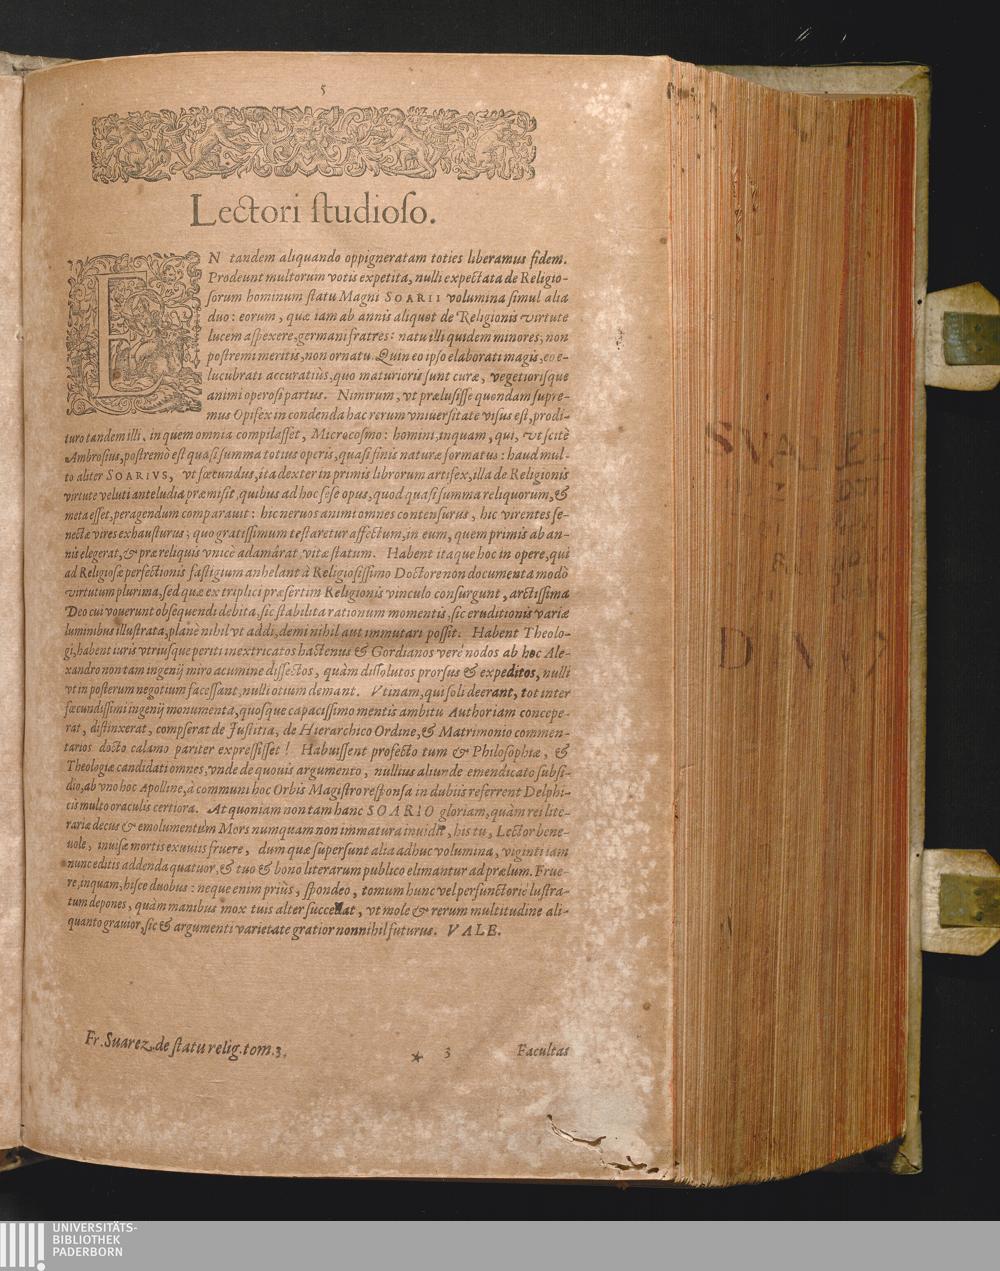 5
Lectori studioso.
EN tandem aliquando oppigneratam toties liberamus fidem.
Prodeunt multorum votis expetita, nulli expectata de Religio-
sorum hominum statu Magni SOARII volumina simul alia
duo: eorum, quæ iam ab annis aliquot de Religionis virtute
lucem aspexere, germani fratres: natu illi quidem minores, non
postremi meritis, non ornatu. Quin eo ipso elaborati magis, eo e-
lucubrati accuratiùs, quo maturioris sunt curæ, vegetiorisque
animi operosi partus. Nimirum, vt prælusisse quondam supre-
mus Opifex in condenda hac rerum vniuersitate visus est, prodi-
turo tandem illi, in quem omnia compilasset, Microcosmo: homini, inquam, qui, vt scitè
Ambrosius, postremò est quasi summa totius operis, quasi finis naturæ formatus: haud mul-
to aliter SOARIVS, vt fœcundus, ita dexter in primis librorum artifex, illa de Religionis
virtute veluti anteludia præmisit, quibus ad hoc sese opus, quod quasi summa reliquorum, &
meta esset, peragendum comparauit: hic neruos animi omnes contensurus, hic virentes se-
nectæ vires exhausturus; quo gratissimum testaretur affectum, in eum, quem primis ab an-
nis elegerat, & præ reliquis vnicè adamârat vitæ statum. Habent itaque hoc in opere, qui
ad Religiosæ perfectionis fastigium anhelant à Religiosissimo Doctore non documenta modò
virtutum plurima, sed quæ ex triplici præsertim Religionis vinculo consurgunt, arctissima
Deo cui vouerunt obsequendi debita, sic stabilita rationum momentis, sic eruditionis variæ
luminibus illustrata, planè nihil vt addi, demi nihil aut immutari possit. Habent Theolo-
gi, habent iuris vtriusque periti inextricatos hactenus & Gordianos verè nodos ab hoc Ale-
xandro non tam ingenij miro acumine dissectos, quàm dissolutos prorsus & expeditos, nulli
vt in posterum negotium facessant, nulli otium demant. Vtinam, qui soli deerant, tot inter
fœcundissimi ingenij monumenta, quosque capacissimo mentis ambitu Author iam concepe-
rat, distinxerat, compserat de Justitia, de Hierarchico Ordine, & Matrimonio commen-
tarios docto calamo pariter expressisset! Habuissent profectò tum & Philosophiæ, &
Theologiæ candidati omnes, vnde de quouis argumento, nullius aliunde emendicato subsi-
dio, ab vno hoc Apolline, à communi hoc Orbis Magistro responsa in dubiis referrent Delphi-
cis multo oraculis certiora. At quoniam non tam hanc SOARIO gloriam, quàm rei lite-
rariæ decus & emolumentum Mors numquam non immatura inuidit, his tu, Lector bene-
uole, inuisæ mortis exuuiis fruere, dum quæ supersunt alia adhuc volumina, viginti iam
nunc editis addenda quatuor, & tuo & bono literarum publico elimantur ad prælum. Frue-
re, inquam, hisce duobus: neque enim priùs, spondeo, tomum hunc vel perfunctoriè lustra-
tum depones, quàm manibus mox tuis alter succedat, vt mole & rerum multitudine ali-
quanto grauior, sic & argumenti varietate gratior nonnihil futurus. VALE.
Fr. Suarez, de statu relig. tom. 3. * 3 Facultas
UNIVERSITÄTS-
BIBLIOTHEK
PADERBORN